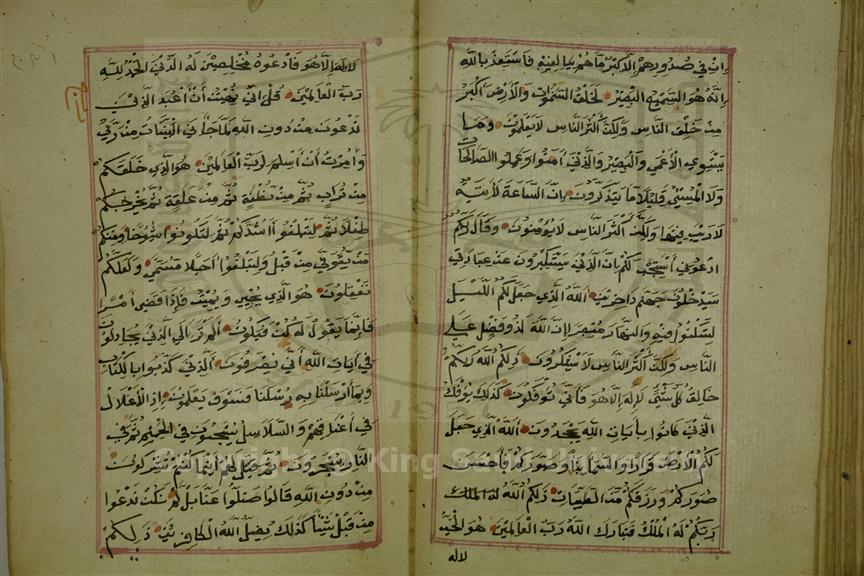 ان في صدورهم الا كبر ما هم ببالغيه فاستعذ بالله
انه هو السميع البصير لخلق السموات والارض اكبر
من خلق الناس ولكن اكثر الناس لا يعلمون وما
يستوي الاعمى والبصير والذين امنوا وعملوا الصالحات
ولا المسئ قليلا ما يتذكرون ان الساعة لاتية
لا ريب فيها ولكن اكثر الناس لا يؤمنون وقال ربكم
ادعوني استجب لكم ان الذين يستكبرون عن عبادتي
سيدخلون جهنم داخرين الله الذي جعل لكم الليل
لتسكنوا فيه والنهار مبصرا ان الله لذو فضل على
الناس ولكن اكثر الناس لا يشكرون ذلكم الله ربكم
خالق كل شئ لا اله الا هو فاني توفكون كذلك يوفك
الذين كانوا بايات الله يجحدون الله الذي جعل
لكم الارض قرارا والسماء بناء وصوركم فاحسن
صوركم ورزقكم من الطيبات ذلكم الله له الملك
ربكم له الملك فتبارك الله رب العالمين هو الحي
لااله
لا اله الا هو فادعوه مخلصين له الدين الحمد لله
رب العالمين قل اني نهيت ان اعبد الذين
تدعون من دون الله لما جاءني البينات من ربي
وامرت ان اسلم لرب العالمين هو الذي خلقكم
من تراب ثم من نطفة ثم من علقة ثم يخرجكم
طفلا ثم لتبلغوا اشدكم ثم لتكونوا شيوخا ومنكم
من يتوفى من قبل ولتبلغوا اجلا مسمى ولعلكم
تعقلون هو الذي يحيي ويميت فاذا قضى امرا
فانما يقول له كن فيكون الم تر الى الذين يجادلون
في ايات الله اني يصرفون الذين كذبوا بالكتاب
وبما ارسلنا به رسلنا فسوف يعلمون اذ الاغلال
في اعناقهم والسلاسل يسحبون في الحميم ثم في
النار يسجرون ثم قيل لهم اينما كنتم تشركون
من دون الله قالوا ضلوا عنا بل لم نكن ندعوا
من قبل شيئا كذلك يضل الله الكافرين ذلكم
Copyright © King Saud University
1957